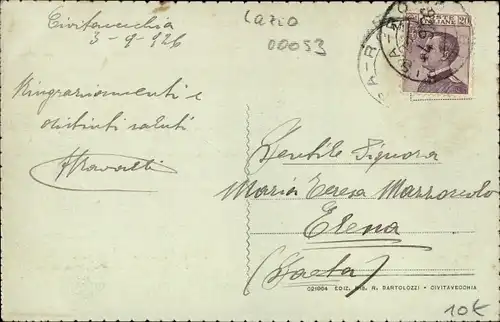 Civitavecchia
3-9-926
Lazio
00053
20
Ringraziamenti e
distinti saluti
Gentile Signora
Maria Teresa Mazzoccolo
Elena
(Gaeta)
021904 EDIZ. RIS. R. BARTOLOZZI - CIVITAVECCHIA
10€